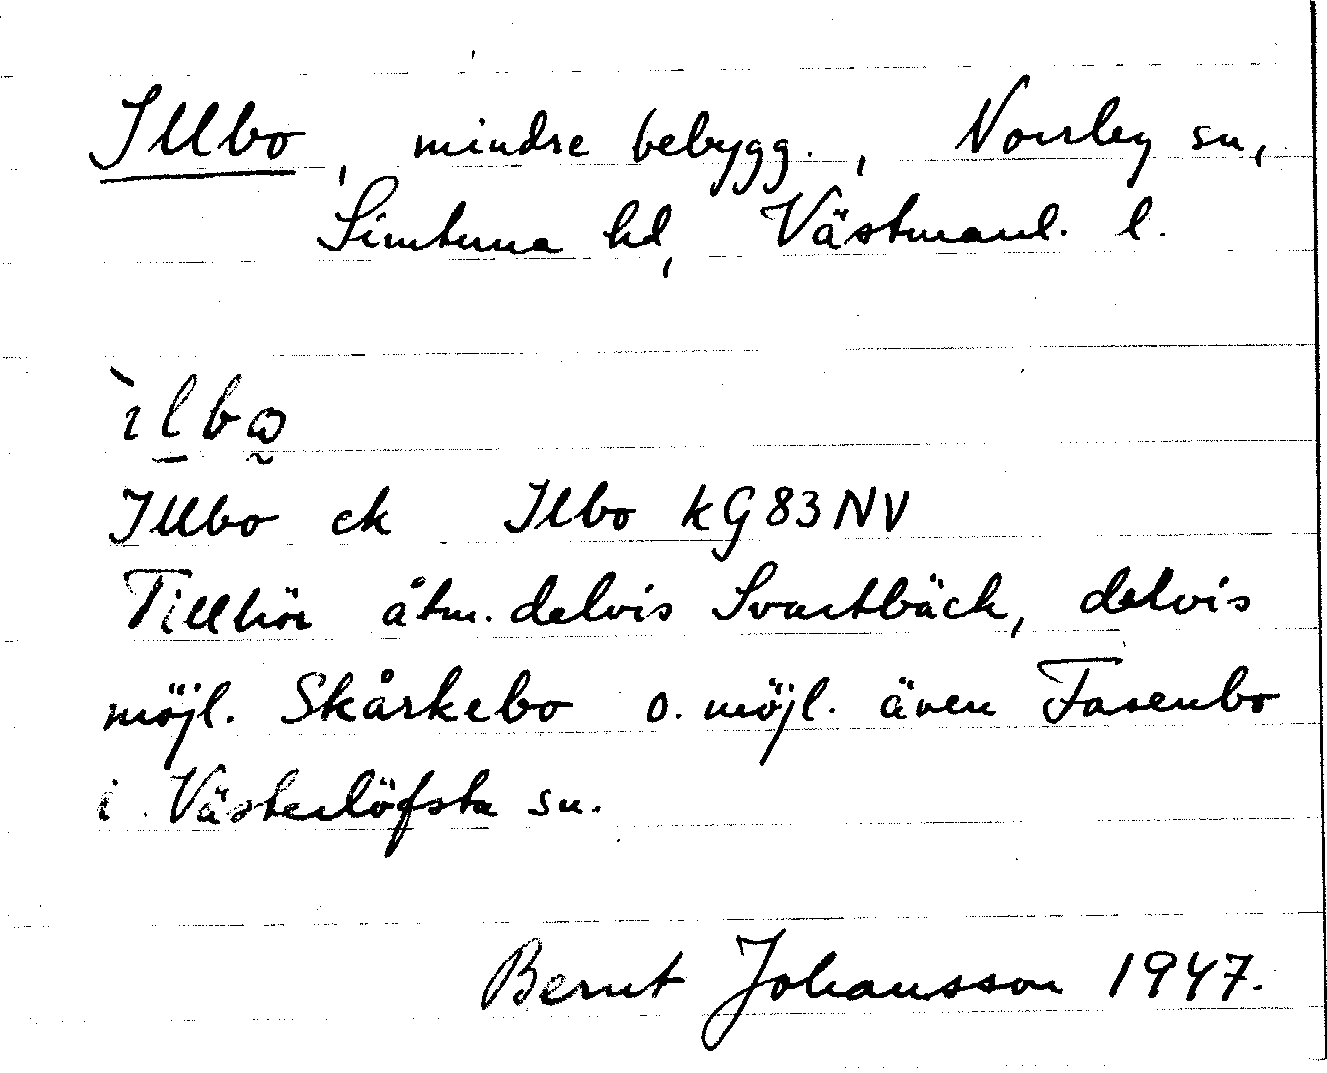 Illbo, mindre bebygg., Norrby sn,
Simtuna hd, Västmanl. l.
ìlbω
Illbo ek Ilbo kG83NV
Tillhör åtm. delvis Svartbäck, delvis
möjl. Skårkebo o. möjl. även Fasenbo
i Västerlöfsta sn.
Bernt Johansson 1947.